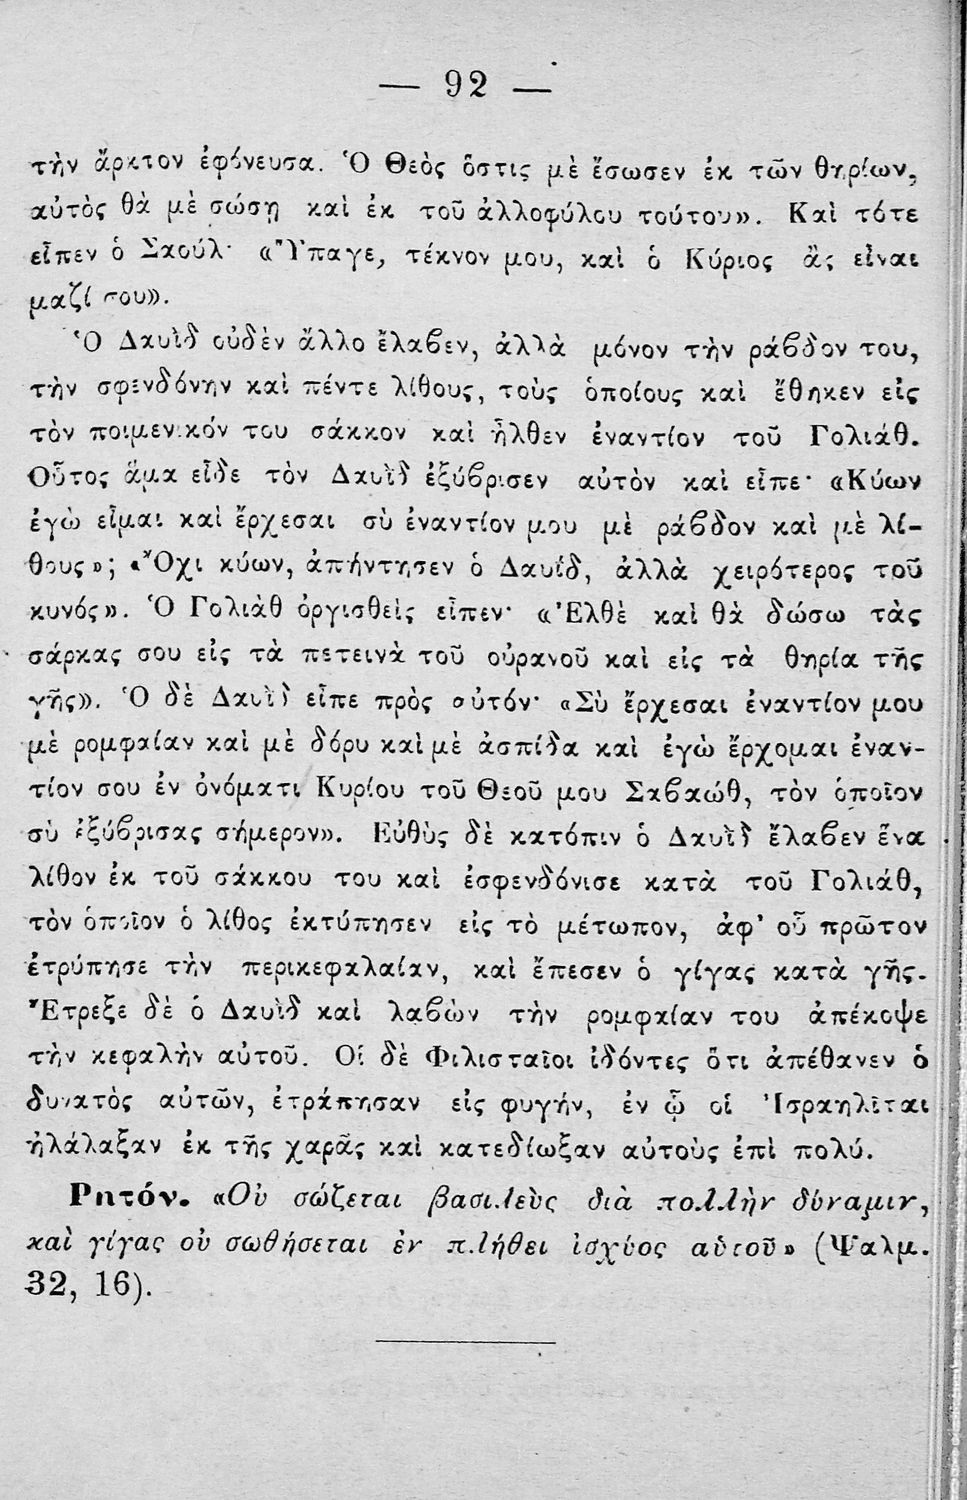 — 92 —
τὴν ἄρκτον ἐφόνευσα. Ὁ Θεὸς ὅστις μὲ ἔσωσεν ἐκ τῶν θηρίων,
αὐτὸς θὰ μὲ σώσῃ καὶ ἐκ τοῦ ἀλλοφύλου τούτου». Καὶ τότε
εἶπεν ὁ Σαούλ· «Ὕπαγε, τέκνον μου, καὶ ὁ Κύριος ἂς εἶναι
μαζί σου».
Ὁ Δαυὶδ οὐδὲν ἄλλο ἔλαβεν, ἀλλὰ μόνον τὴν ράβδον του,
τὴν σφενδόνην καὶ πέντε λίθους, τοὺς ὁποίους καὶ ἔθηκεν εἰς
τὸν ποιμενικόν του σάκκον καὶ ἦλθεν ἐναντίον τοῦ Γολιάθ.
Οὗτος ἅμα εἶδε τὸν Δαυὶδ ἐξύβρισεν αὐτὸν καὶ εἶπε· «Κύων
ἐγὼ εἶμαι καὶ ἔρχεσαι σὺ ἐναντίον μου μὲ ράβδον καὶ μὲ λί-
θους»; «Ὄχι κύων, ἀπήντησεν ὁ Δαυίδ, ἀλλὰ χειρότερος τοῦ
κυνός». Ὁ Γολιὰθ ὀργισθεὶς εἶπεν· «Ἐλθὲ καὶ θὰ δώσω τὰς
σάρκας σου εἰς τὰ πετεινὰ τοῦ οὐρανοῦ καὶ εἰς τὰ θηρία τῆς
γῆς». Ὁ δὲ Δαυὶδ εἶπε πρὸς αὐτόν· «Σὺ ἔρχεσαι ἐναντίον μου
μὲ ρομφαίαν καὶ μὲ δόρυ καὶ μὲ ἀσπίδα καὶ ἐγὼ ἔρχομαι ἐναν-
τίον σου ἐν ὀνόματι Κυρίου τοῦ Θεοῦ μου Σαβαώθ, τὸν ὁποῖον
σὺ ἐξύβρισας σήμερον». Εὐθὺς δὲ κατόπιν ὁ Δαυὶδ ἔλαβεν ἕνα
λίθον ἐκ τοῦ σάκκου του καὶ ἐσφενδόνισε κατὰ τοῦ Γολιάθ,
τὸν ὁποῖον ὁ λίθος ἐκτύπησεν εἰς τὸ μέτωπον, ἀφ' οὗ πρῶτον
ἐτρύπησε τὴν περικεφαλαίαν, καὶ ἔπεσεν ὁ γίγας κατὰ γῆς.
Ἔτρεξε δὲ ὁ Δαυὶδ καὶ λαβὼν τὴν ρομφαίαν του ἀπέκοψε
τὴν κεφαλὴν αὐτοῦ. Οἱ δὲ Φιλισταῖοι ἰδόντες ὅτι ἀπέθανεν ὁ
δυνατὸς αὐτῶν, ἐτράπησαν εἰς φυγήν, ἐν ᾧ οἱ Ἰσραηλῖται
ἠλάλαξαν ἐκ τῆς χαρᾶς καὶ κατεδίωξαν αὐτοὺς ἐπὶ πολύ.
Ρητόν. «Οὐ σώζεται βασιλεὺς διὰ πολλὴν δύναμιν,
καὶ γίγας οὐ σωθήσεται ἐν πλήθει ἰσχύος αὑτοῦ» (Ψαλμ.
32, 16).